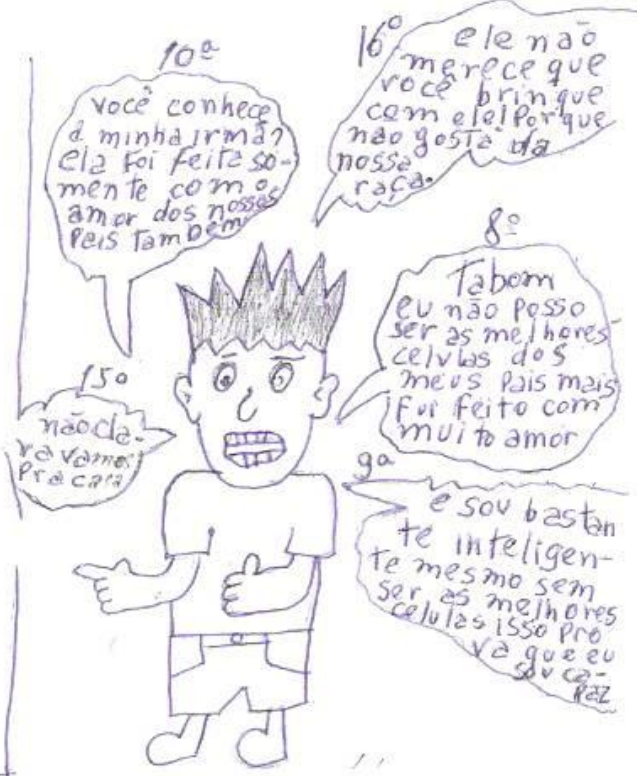 10ª
você conhece
a minha irmã?
ela foi feita so-
mente com o
amor dos nossos
Pais também
16º
ele não
merece que
você brinque
com ele! Porque
não gosta da
nossa
raça.
8º
Tabom
eu não posso
ser as melhores
celulas dos
meus Pais mais
Fui feito com
muito amor
15º
não cla-
ra vamos
Pra casa
9ª
e sou bastan
te inteligen-
te mesmo sem
ser as melhores
celulas isso pro
va que eu
sou ca-
paz